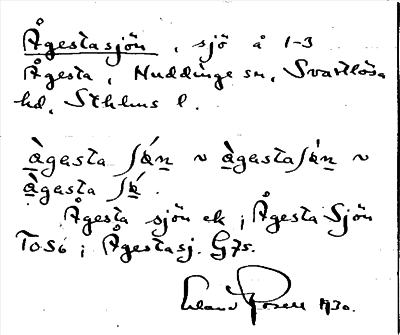 Ågestasjön, sjö å 1-3
Ågesta, Huddinge sn, Svartlösa
hd, Sthlms l.
àgesta ʃǿn ~ àgestaʃǿn ~
àgesta ʃǿ.
Ågesta sjön ek; Ågesta Sjön
To56; Ågestasj. G75.
Erland Rosell 1930.